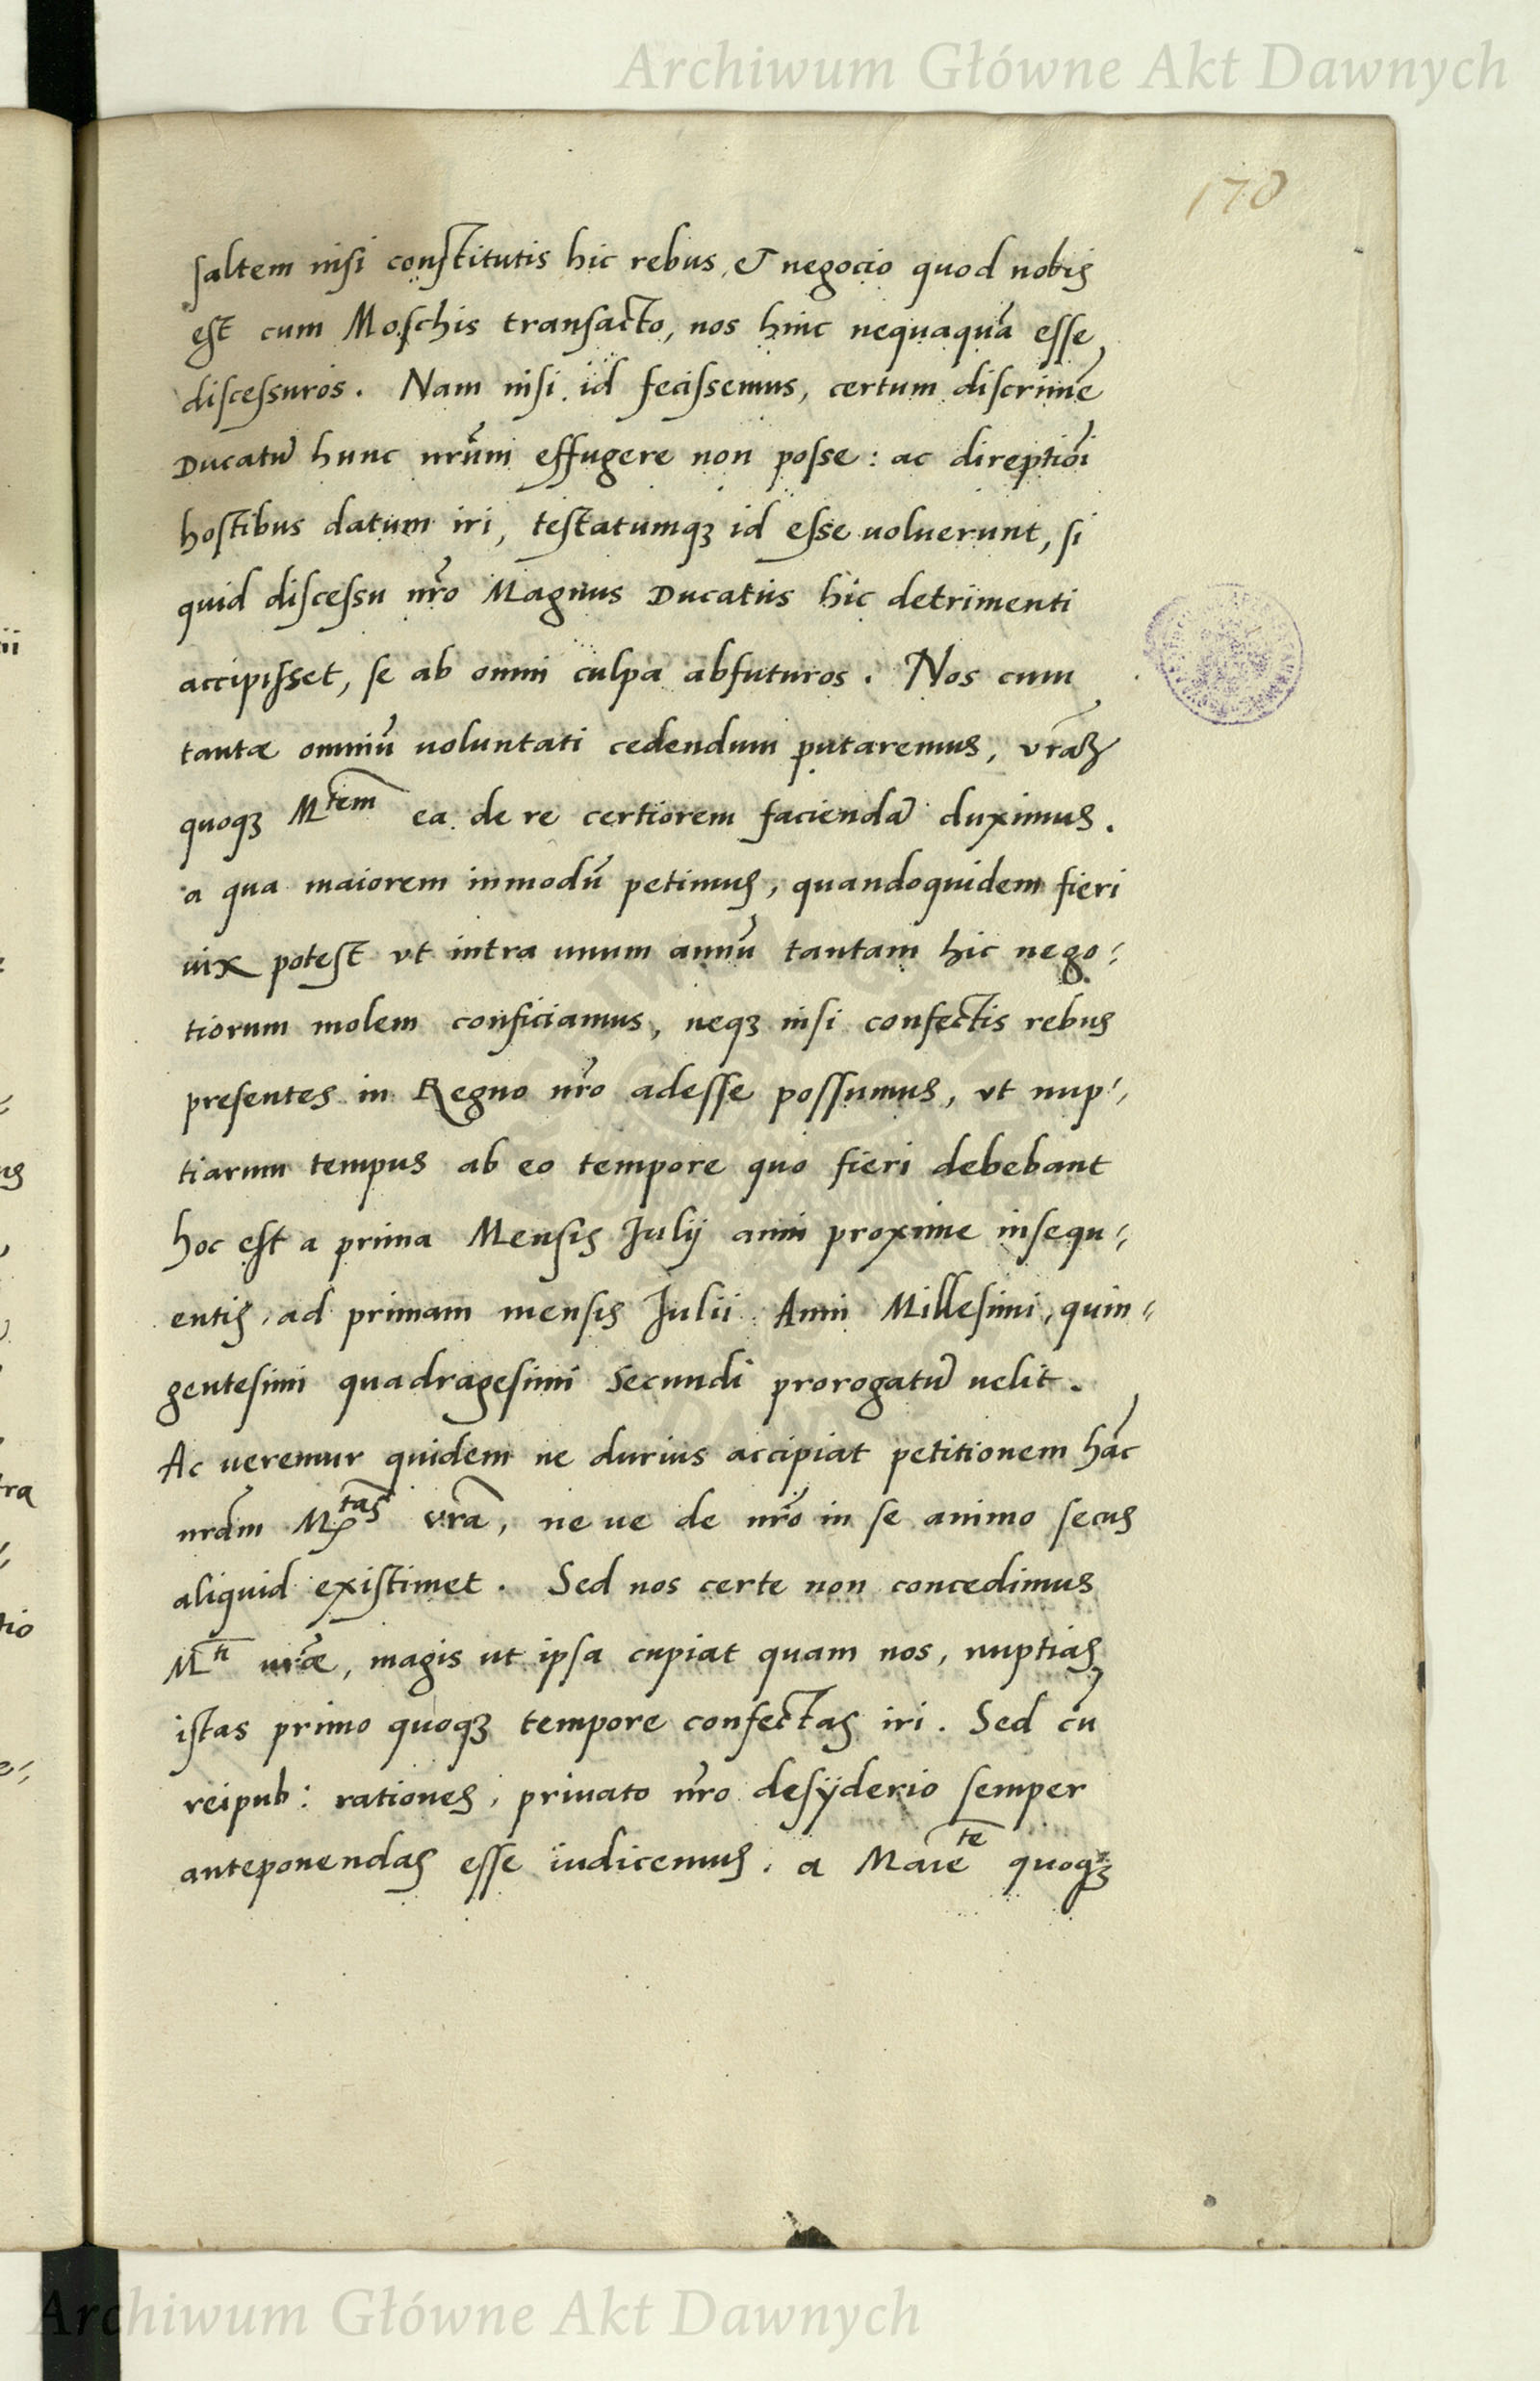 Archiwum Główne Akt Dawnych
170
saltem nisi constitutis hic rebus, & negocio quod nobis
est cum Moschis transacto, nos hinc nequaquã esse
discessuros. Nam nisi id fecissemus, certum discrimẽ
Ducatũ hunc nr̃um effugere non posse: ac direptiõi
hostibus datum iri, testatumqꝫ id esse uoluerunt, si
quid discessu nr̃o Magnus Ducatus hic detrimenti
accipisset, se ab omni culpa abfuturos. Nos cum
tantæ omniũ uoluntati cedendum putaremus, vr̃aꝫ
quoqꝫ Mtem ea de re certiorem faciendã duximus.
a qua maiorem inmodũ petimus, quandoquidem fieri
uix potest vt intra unum annũ tantam hic nego:
tiorum molem conficiamus, neqꝫ nisi confectis rebus
presentes in Regno nr̃o adesse possumus, vt nup:
tiarum tempus ab eo tempore quo fieri debebant
hoc est a prima Mensis Julij anni proxime insequ:
entis, ad primam mensis Julii Anni Millesimi, quin:
gentesimi quadragesimi Secundi prorogatũ uelit.
Ac ueremur quidem ne durius accipiat petitionem hãc
nr̃am Mtas vr̃a, ne ue de nr̃o in se animo secus
aliquid existimet. Sed nos certe non concedimus
Mti ur̃æ, magis ut ipsa cupiat quam nos, nuptias
istas primo quoqꝫ tempore confectas iri. Sed cũ
reipub: rationes, priuato nr̃o desÿderio semper
anteponendas esse iudicemus. a Maie te quoqꝫ
ii
us
tra
tio
Archiwum Główne Akt Dawnych